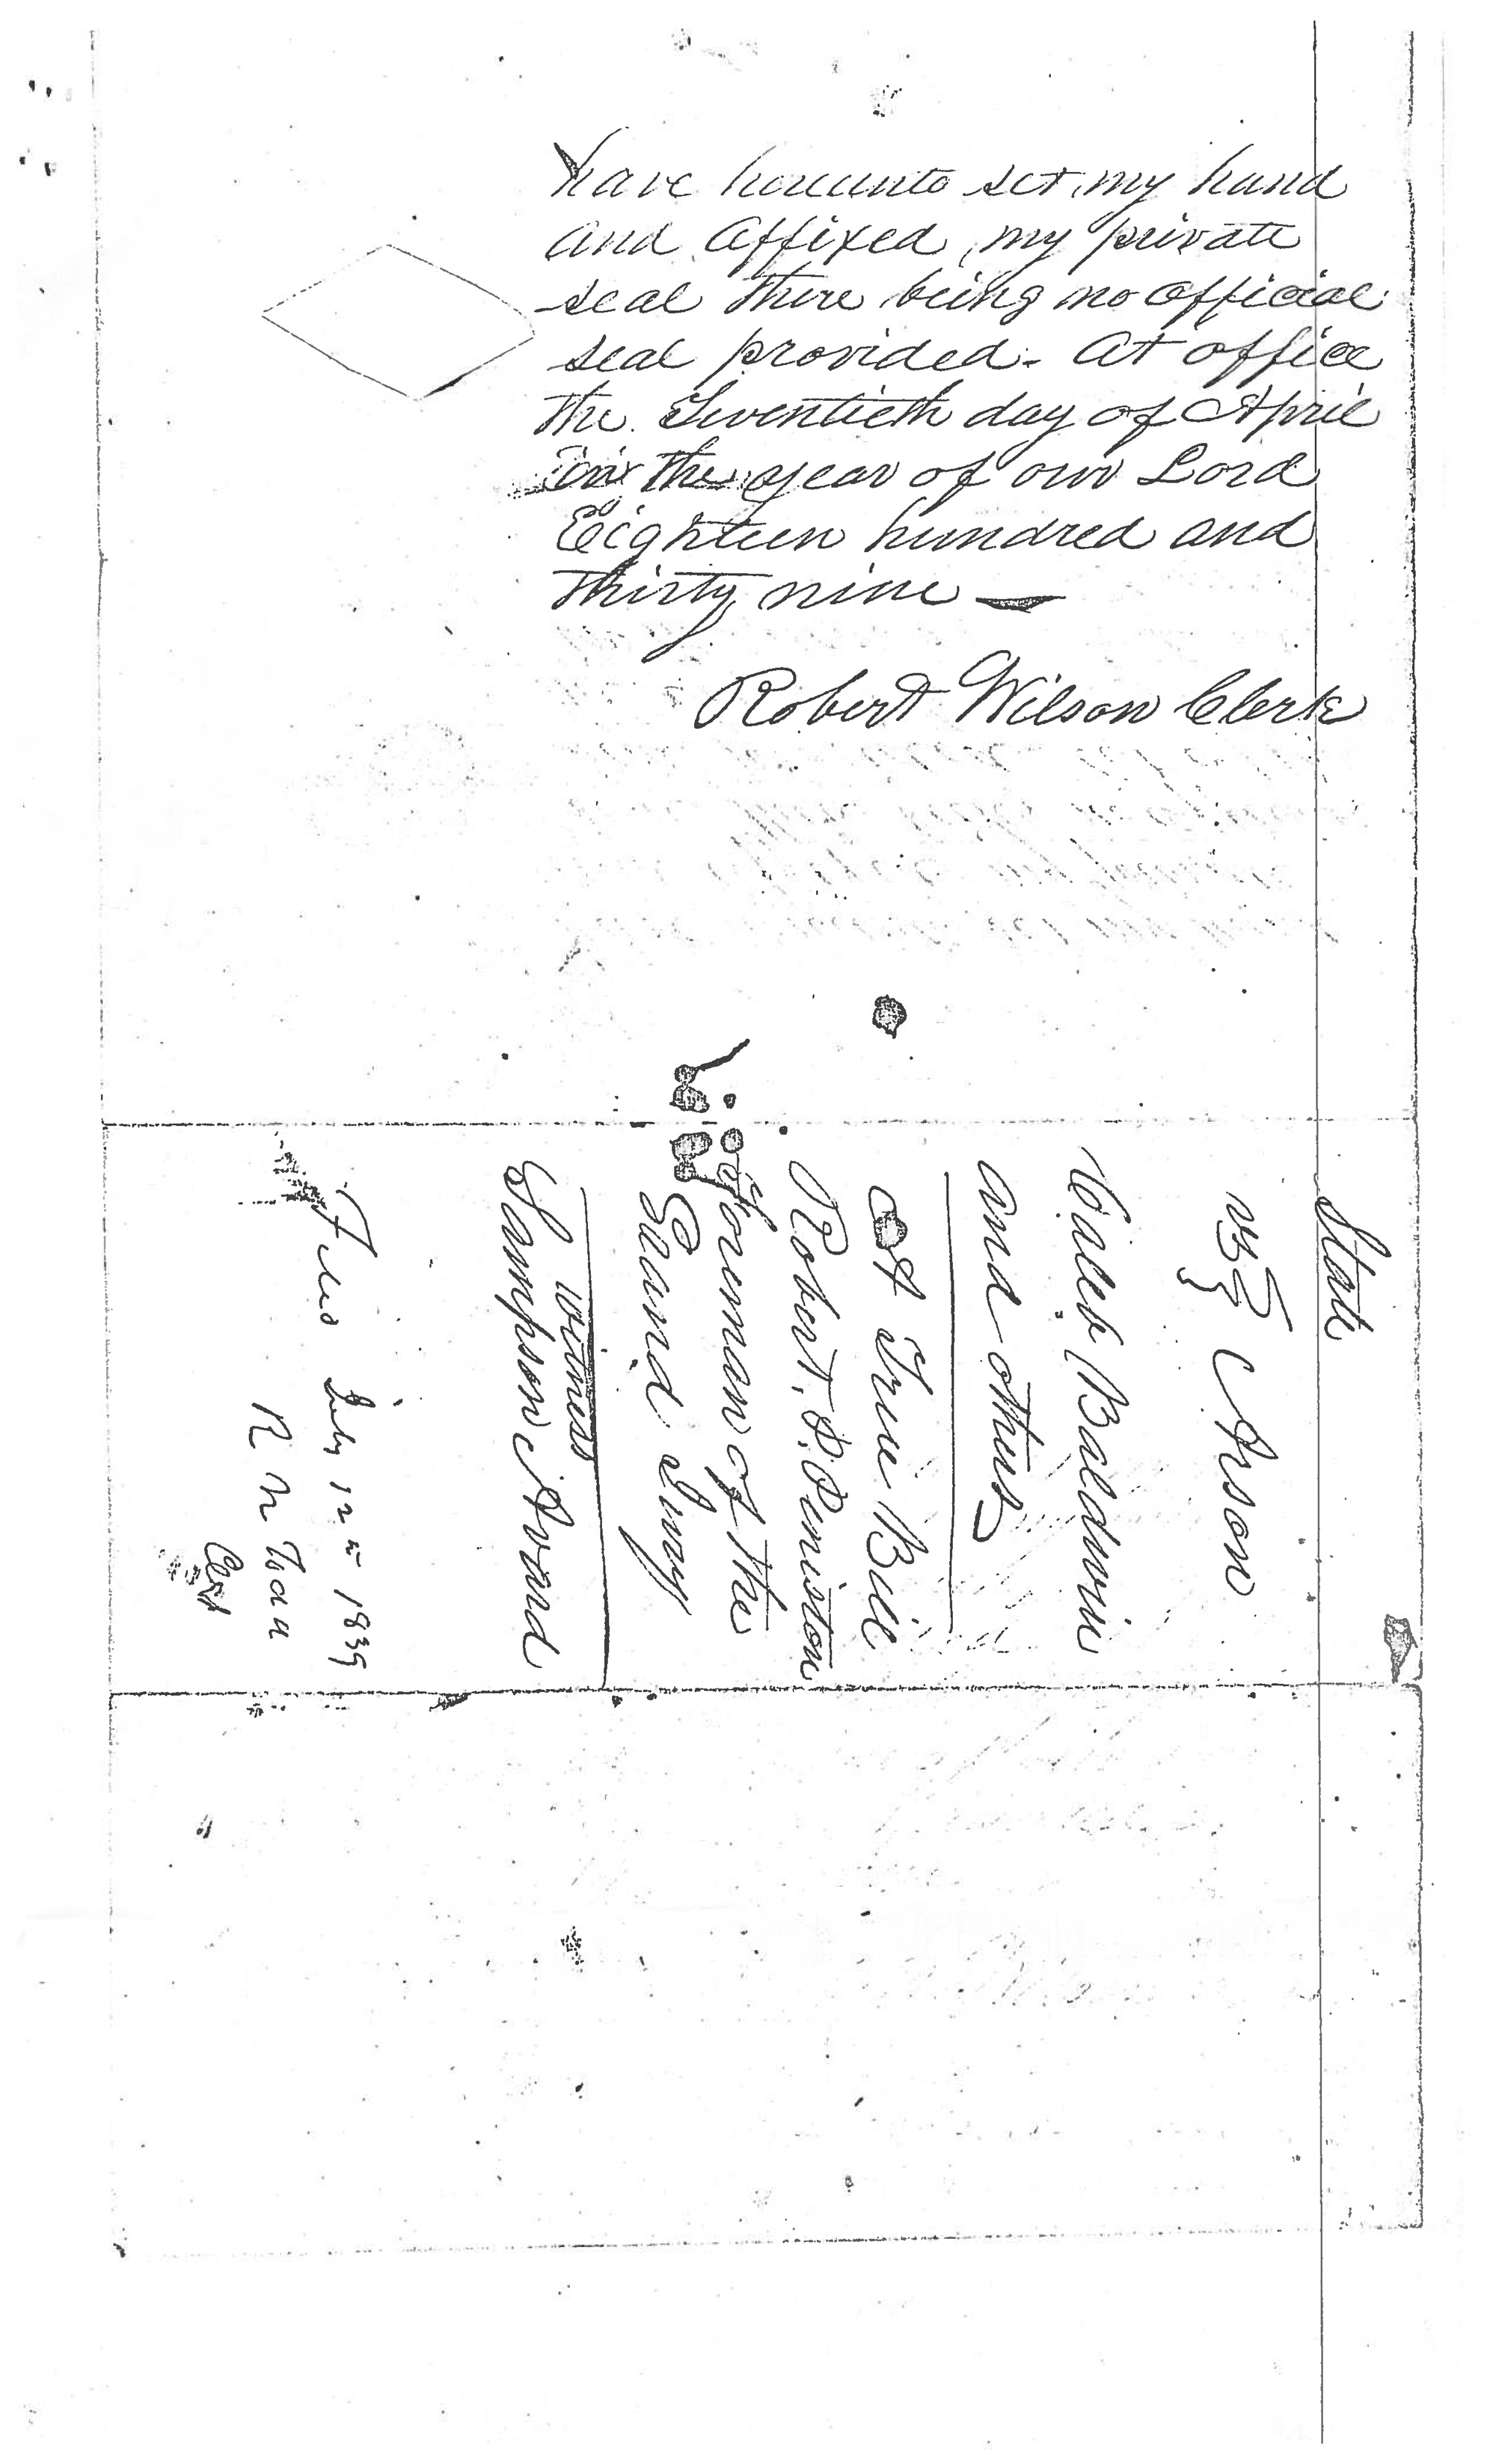 have hereunto set my hand
and affixed my private
seal there being no official
seal provided. At office
the Twentieth day of April
in the year of our Lord
Eighteen hundred and
thirty nine —
Robert Wilson Clerk
State
vs } Arson
Caleb Baldwin
and others
A True Bill
Robert P. Peniston
Foreman of the
Grand Jury
witness
Sampson Avard
Filed July 12th 1839
R N
Clerk